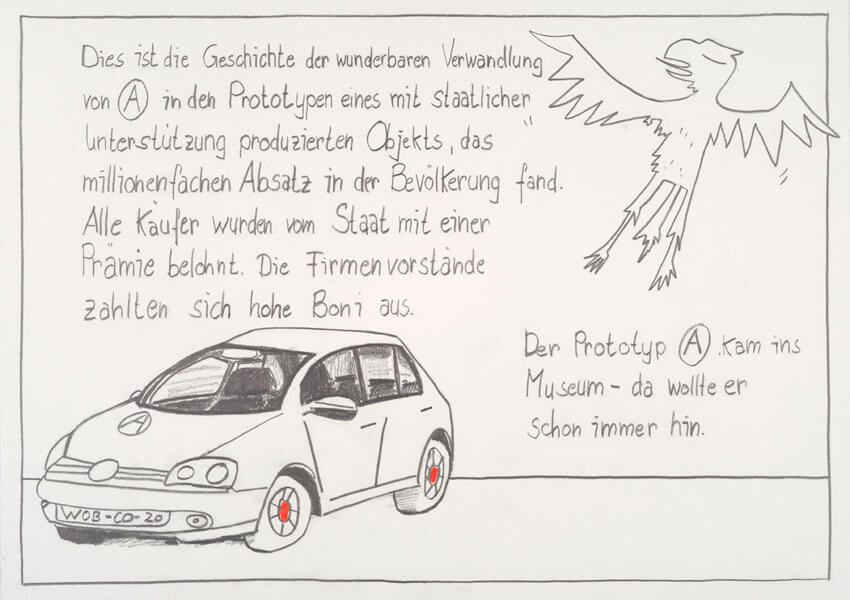 Dies ist die Geschichte der wunderbaren Verwandlung
von Ⓐ in den Prototypen eines mit staatlicher
Unterstützung produzierten Objekts, das
millionenfachen Absatz in der Bevölkerung fand.
Alle Käufer wurden vom Staat mit einer
Prämie belohnt. Die Firmenvorstände
zahlten sich hohe Boni aus.
Der Prototyp Ⓐ kam ins
Museum – da wollte er
schon immer hin.
Ⓐ
WOB-CO-20